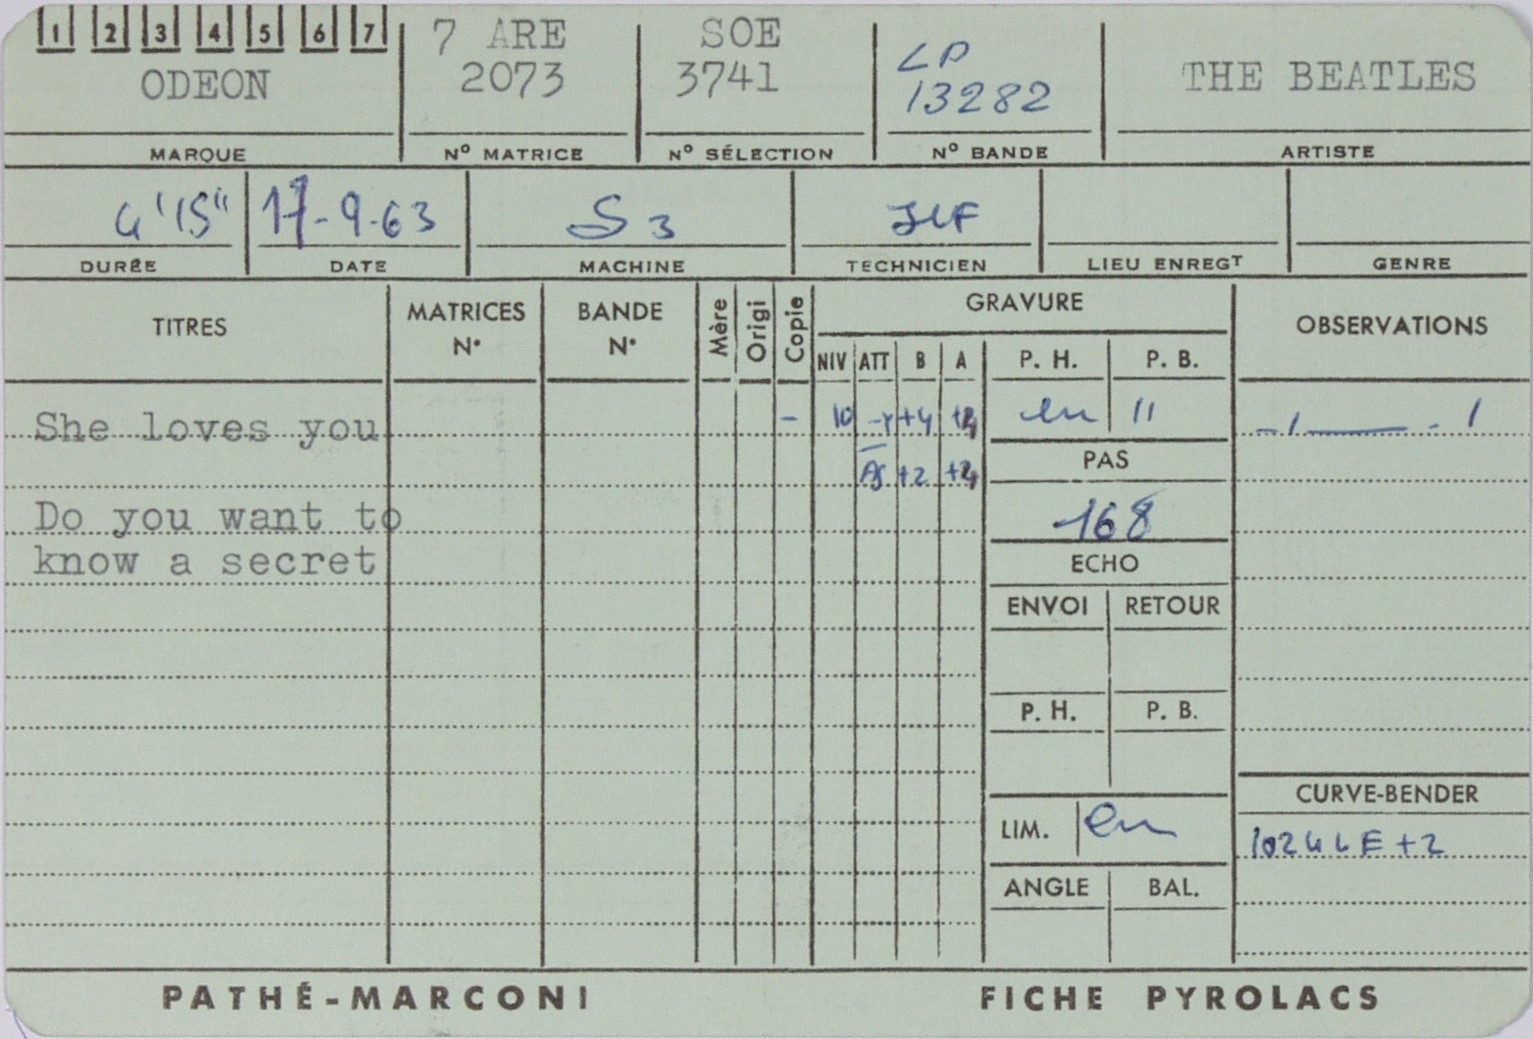 1 2 3 4 5 6 7
ODEON
7 ARE
2073
SOE
3741
LP
13282
THE BEATLES
MARQUE
Nº MATRICE
Nº SÉLECTION
Nº BANDE
ARTISTE
4'15"
17-9-63
S 3
DURÉE
DATE
MACHINE
TECHNICIEN
LIEU ENREGT
GENRE
TITRES
MATRICES
N°
BANDE
N°
Mère
Origi
Copie
GRAVURE
NIV ATT B A
P. H. P. B.
OBSERVATIONS
She loves you
- 10 +4
en 11
+2
PAS
Do you want to
168
know a secret
ECHO
ENVOI RETOUR
P. H. P. B.
CURVE-BENDER
LIM. en
1024 LE +2
ANGLE BAL.
PATHÉ-MARCONI
FICHE PYROLACS